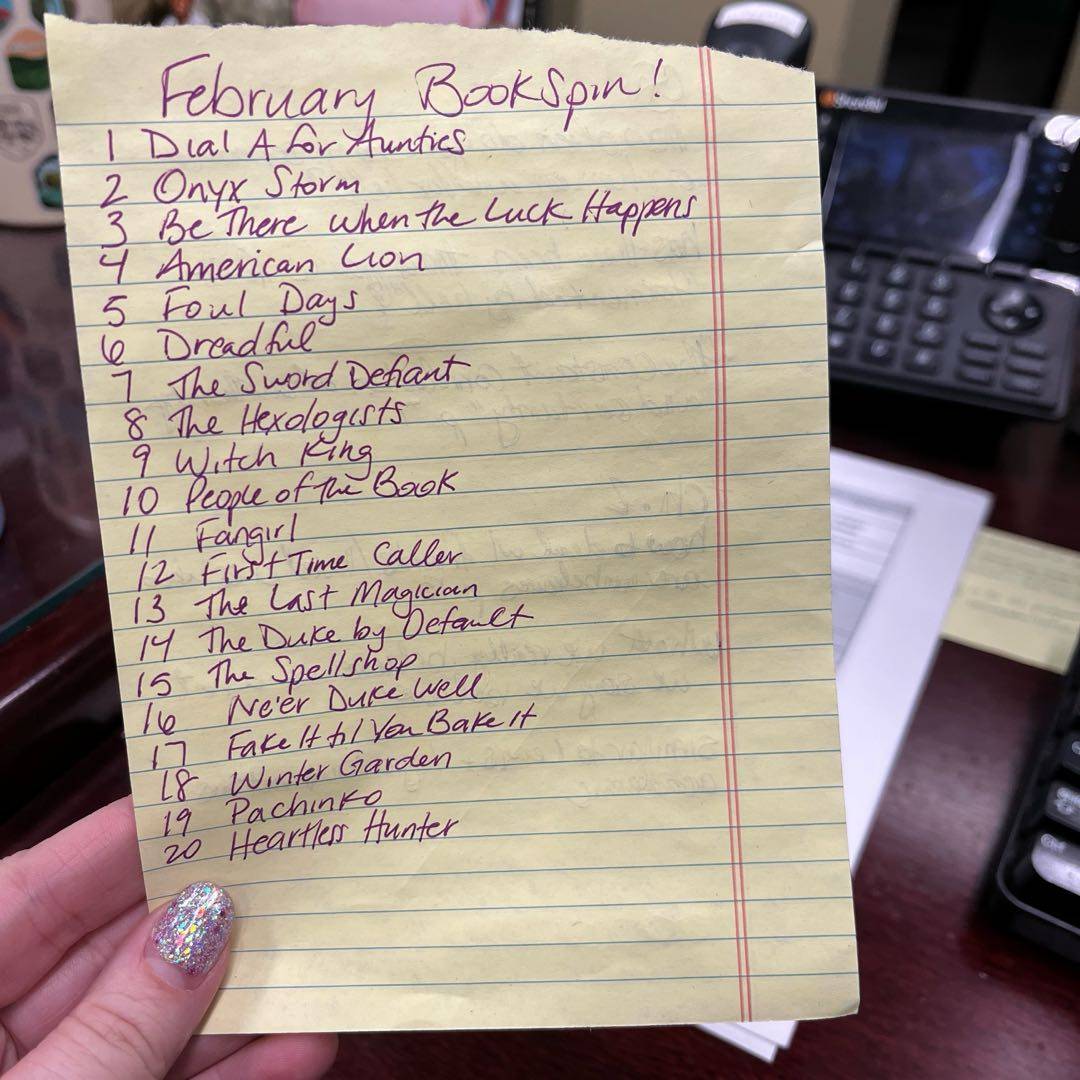 February BookSpin!
1 Dial A for Aunties
2 Onyx Storm
3 Be There When the Luck Happens
4 American Lion
5 Foul Days
6 Dreadful
7 The Sword Defiant
8 The Hexologists
9 Witch King
10 People of the Book
11 Fangirl
12 First Time Caller
13 The Last Magician
14 The Duke by Default
15 The Spellshop
16 Ne'er Duke Well
17 Fake It til You Bake It
18 Winter Garden
19 Pachinko
20 Heartless Hunter